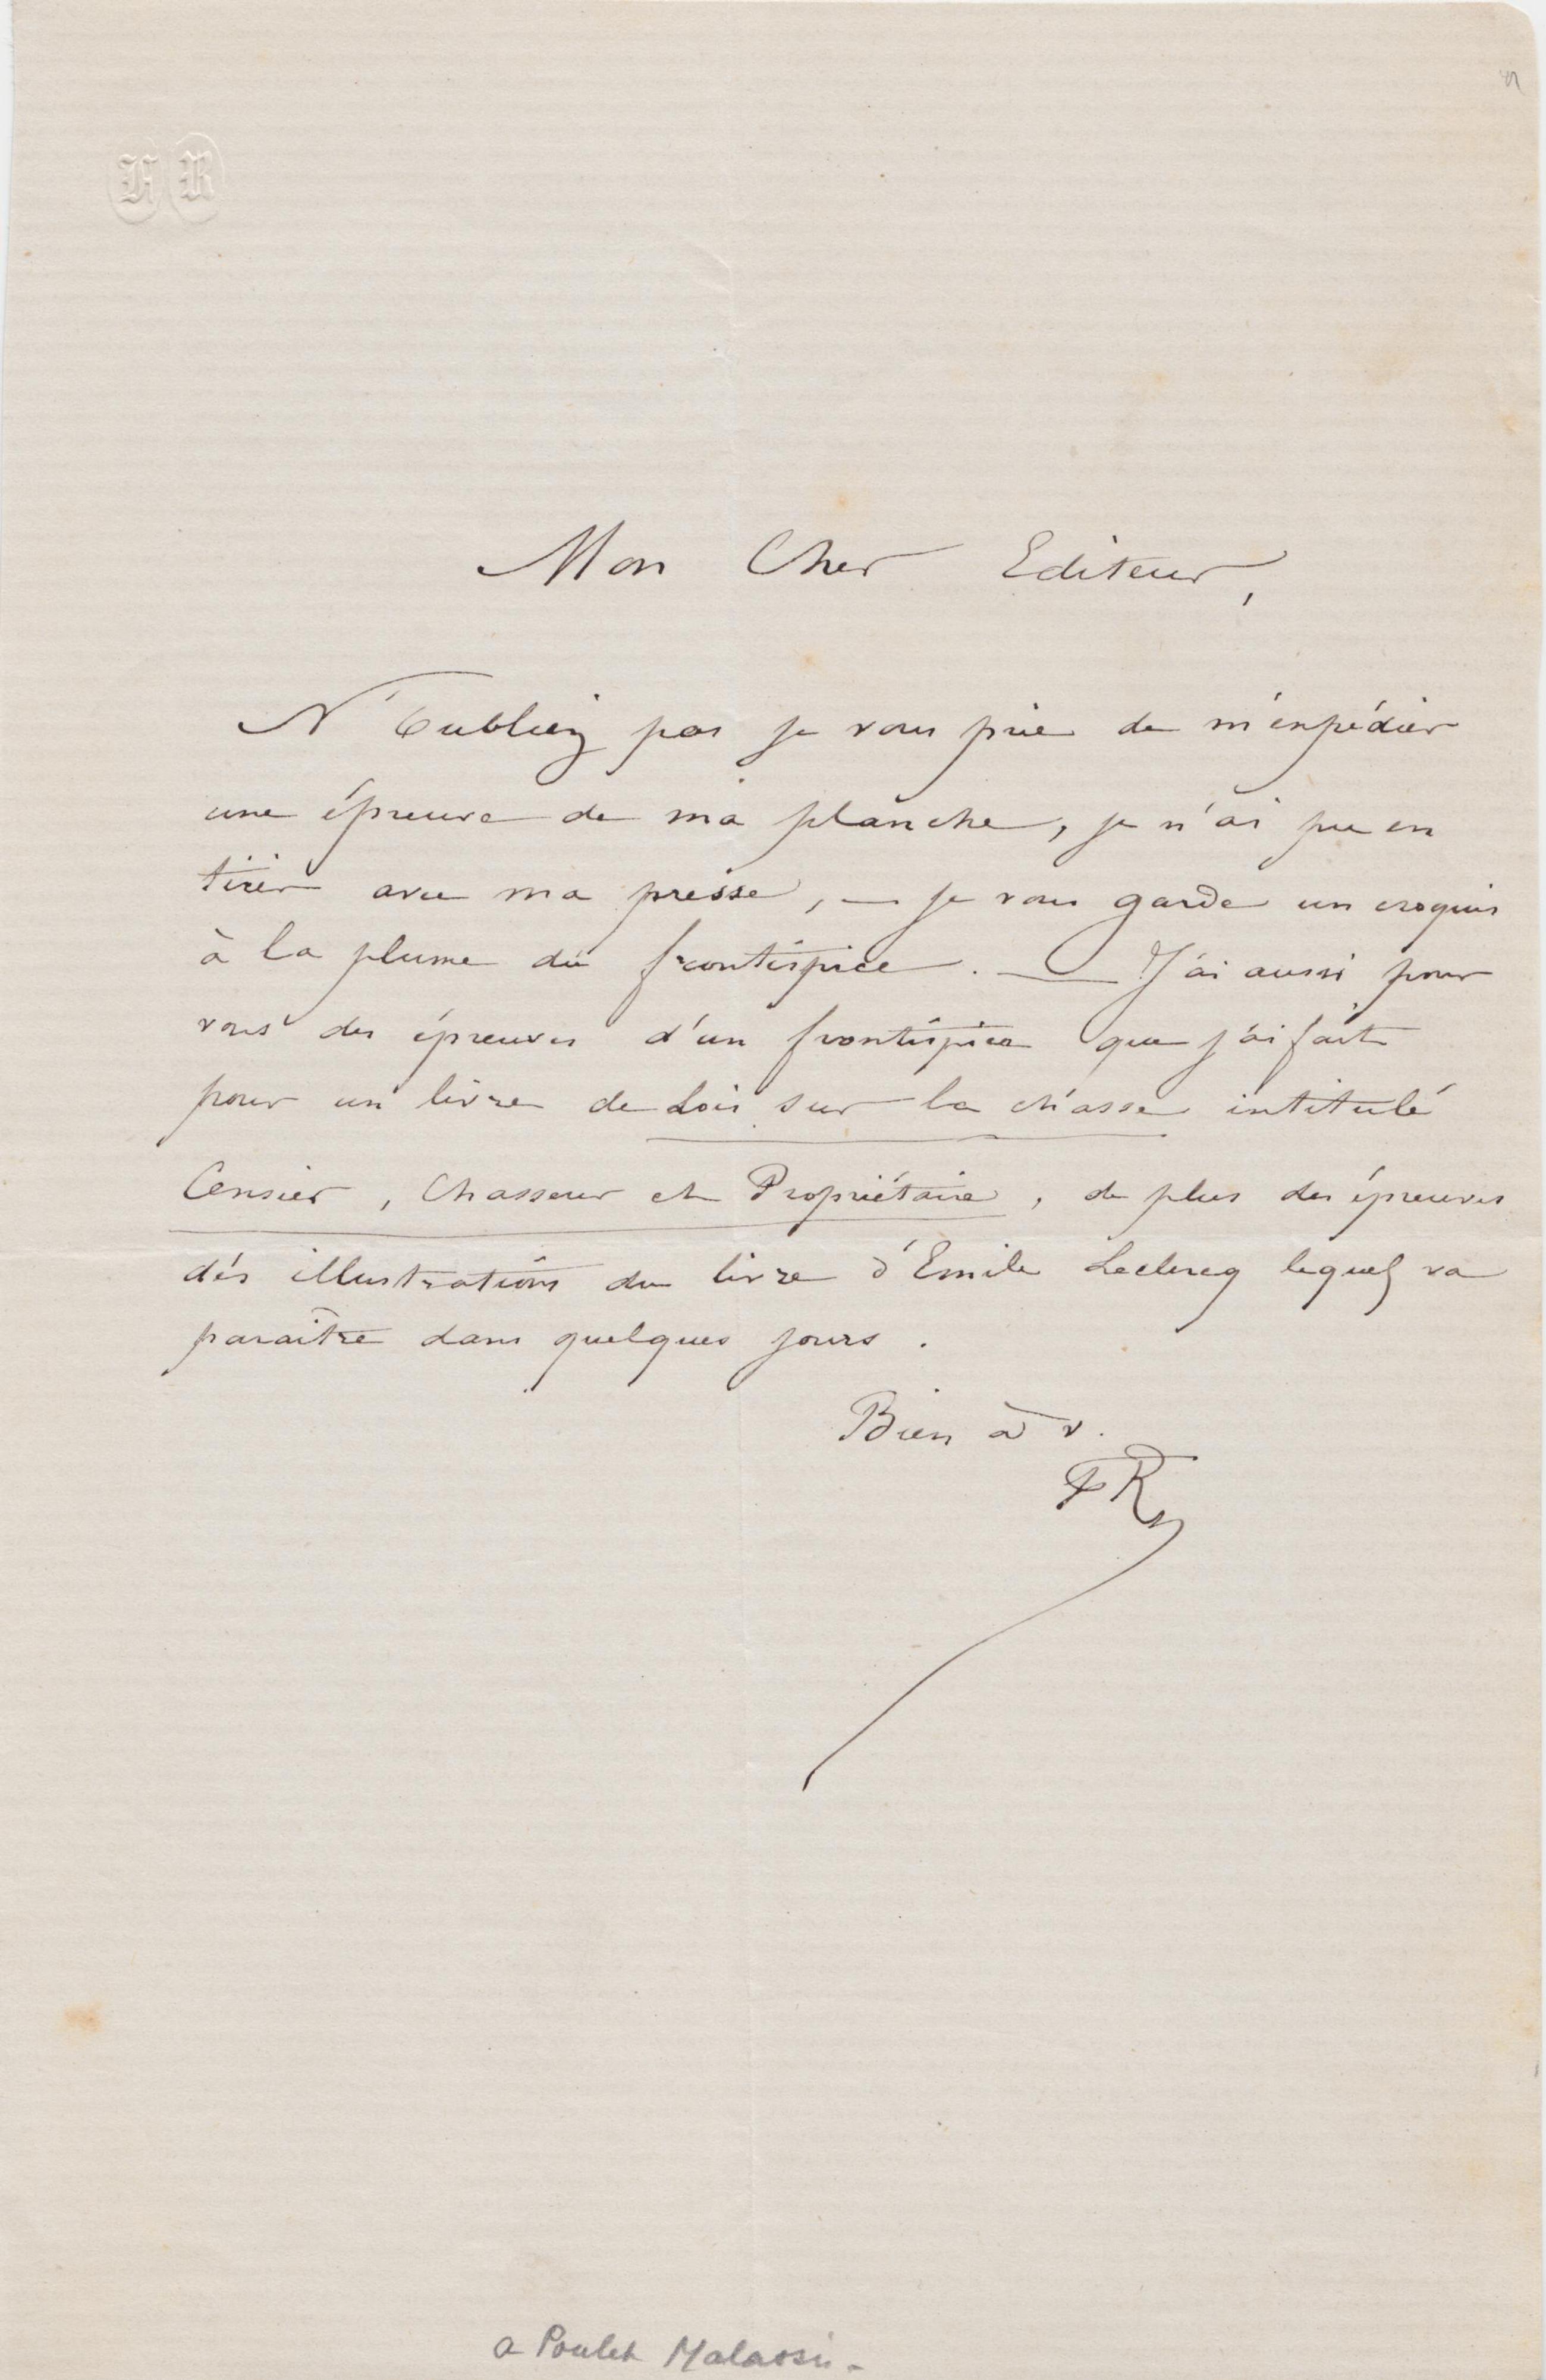 FR
Mon Cher Editeur,
N'oubliez pas je vous prie de m'expédier
une épreuve de ma planche, je n'ai pu en
tirer avec ma presse, — je vous garde un croquis
à la plume du frontispice. — J'ai aussi pour
vous des épreuves d'un frontispice que j'ai fait
pour un livre de Lois sur la chasse intitulé
Censier, Chasseur et Propriétaire, de plus des épreuves
des illustrations du livre d'Emile Leclercq lequel va
paraître dans quelques jours.
Bien à v.
FR
a Poulet Malassis-